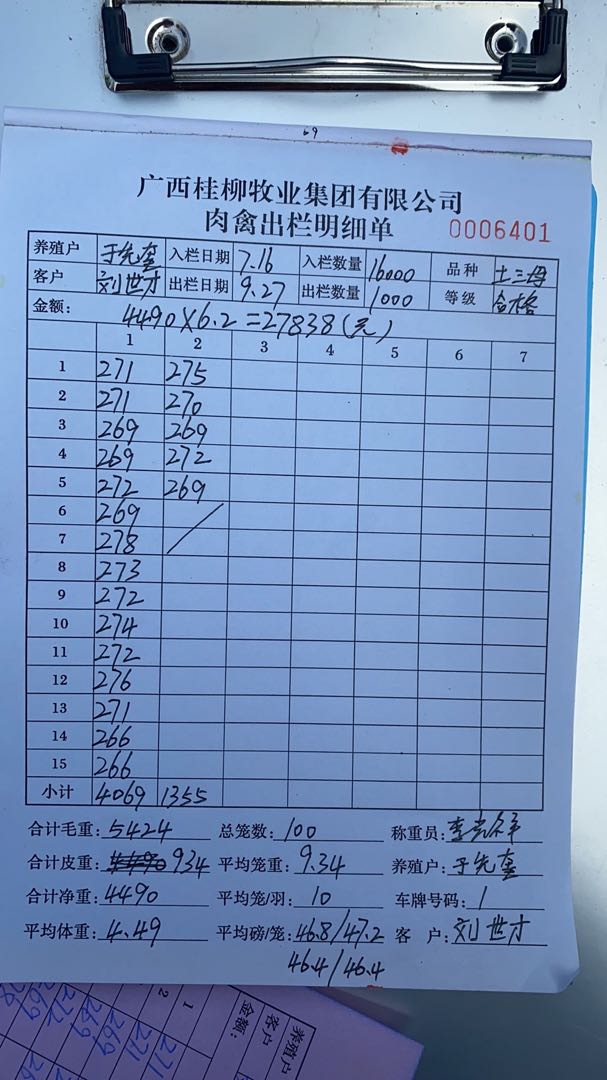 69
广西桂柳牧业集团有限公司
肉禽出栏明细单 0006401
养殖户 于先奎 入栏日期 7.16 入栏数量 16000 品种 土三母
客户 刘世才 出栏日期 9.27 出栏数量 1000 等级 合格
金额: 4490×6.2=27838(元)
1 2 3 4 5 6 7
1 271 275
2 271 270
3 269 269
4 269 272
5 272 269
6 269
7 278
8 273
9 272
10 274
11 272
12 276
13 271
14 266
15 266
小计 4069 1355
合计毛重: 5424 总笼数: 100 称重员:
合计皮重: 934 平均笼重: 9.34 养殖户: 于先奎
合计净重: 4490 平均笼/羽: 10 车牌号码: 1
平均体重: 4.49 平均磅/笼: 46.8/47.2 客户: 刘世才
46.4/46.4
养殖户
客户
金额:
1 2
271
271
269
269
272
269